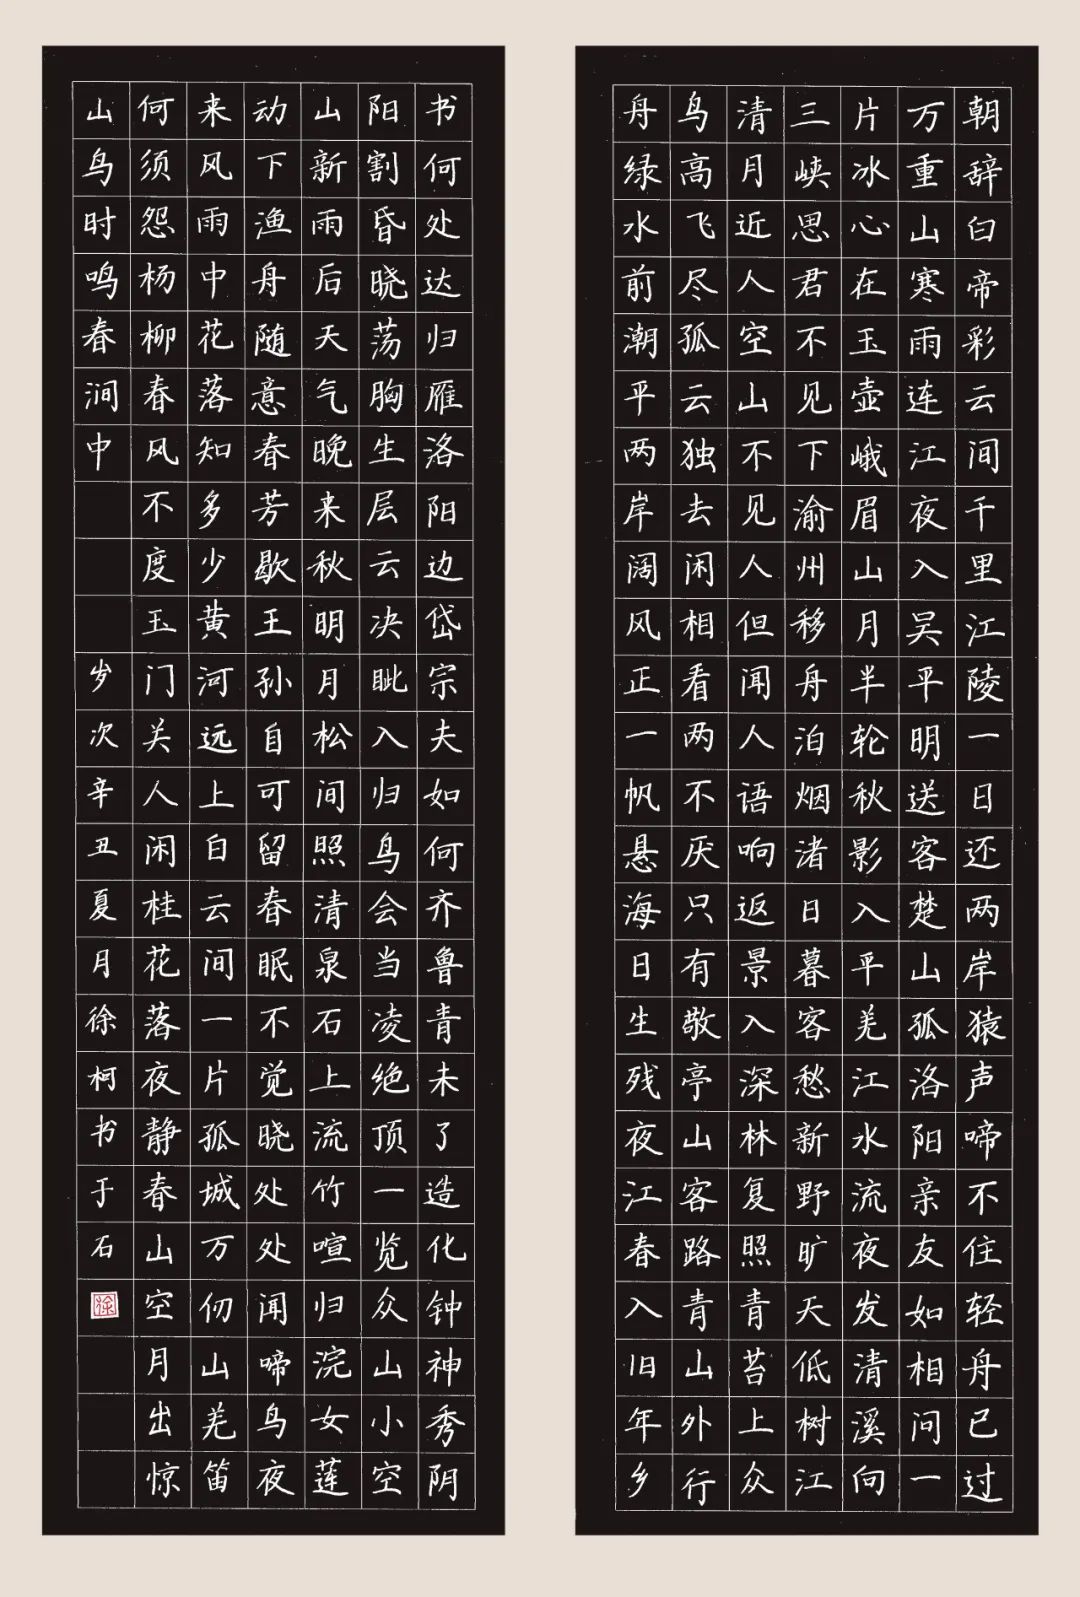 朝辞白帝彩云间千里江陵一日还两岸猿声啼不住轻舟已过
万重山寒雨连江夜入吴平明送客楚山孤洛阳亲友如相问一
片冰心在玉壶峨眉山月半轮秋影入平羌江水流夜发清溪向
三峡思君不见下渝州移舟泊烟渚日暮客愁新野旷天低树江
清月近人空山不见人但闻人语响返景入深林复照青苔上众
鸟高飞尽孤云独去闲相看两不厌只有敬亭山客路青山外行
舟绿水前潮平两岸阔风正一帆悬海日生残夜江春入旧年乡
书何处达归雁洛阳边岱宗夫如何齐鲁青未了造化钟神秀阴
阳割昏晓荡胸生层云决眦入归鸟会当凌绝顶一览众山小空
山新雨后天气晚来秋明月松间照清泉石上流竹喧归浣女莲
动下渔舟随意春芳歇王孙自可留春眠不觉晓处处闻啼鸟夜
来风雨中花落知多少黄河远上白云间一片孤城万仞山羌笛
何须怨杨柳春风不度玉门关人闲桂花落夜静春山空月出惊
山鸟时鸣春涧中 岁次辛丑夏月徐柯书于石